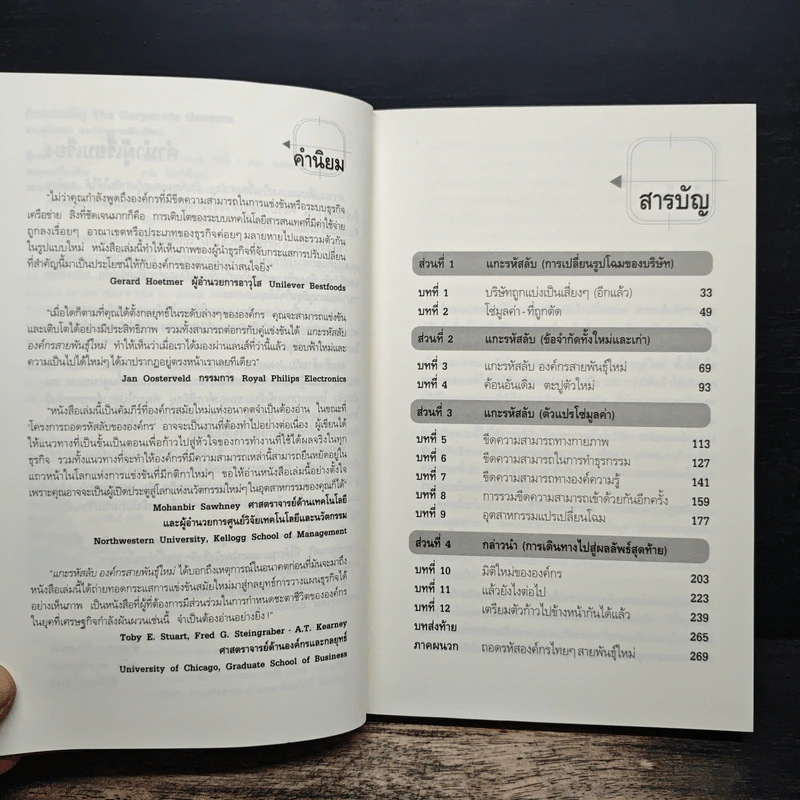 คำนิยม
"ไม่ว่าคุณกำลังพูดถึงองค์กรที่มีขีดความสามารถในการแข่งขันหรือระบบธุรกิจ
เครือข่าย สิ่งที่ชัดเจนมากก็คือ การเติบโตของระบบเทคโนโลยีสารสนเทศที่มีค่าใช้จ่าย
ถูกลงเรื่อยๆ อาณาเขตหรือประเภทของธุรกิจค่อยๆ มลายหายไปและรวมตัวกัน
ในรูปแบบใหม่ หนังสือเล่มนี้ทำให้เห็นภาพของผู้นำธุรกิจที่จับกระแสการปรับเปลี่ยน
ที่สำคัญนี้มาเป็นประโยชน์ให้กับองค์กรของตนอย่างน่าสนใจยิ่ง"
Gerard Hoetmer ผู้อำนวยการอาวุโส Unilever Bestfoods
"เมื่อใดก็ตามที่คุณได้ตั้งกลยุทธ์ในระดับต่างๆ ขององค์กร คุณจะสามารถแข่งขัน
และเติบโตได้อย่างมีประสิทธิภาพ รวมทั้งสามารถต่อกรกับคู่แข่งขันได้ แกะรหัสลับ
องค์กรสายพันธุ์ใหม่ ทำให้เห็นว่าเมื่อเราได้มองผ่านเลนส์ที่ว่านี้แล้ว ขอบฟ้าใหม่และ
ความเป็นไปได้ใหม่ๆ ได้มาปรากฏอยู่ตรงหน้าเราเลยทีเดียว"
Jan Oosterveld กรรมการ Royal Philips Electronics
"หนังสือเล่มนี้เป็นคัมภีร์ที่องค์กรสมัยใหม่แห่งอนาคตจำเป็นต้องอ่าน ในขณะที่
'โครงการถอดรหัสลับขององค์กร' อาจจะเป็นงานที่ต้องทำไปอย่างต่อเนื่อง ผู้เขียนได้
ให้แนวทางที่เป็นขั้นเป็นตอนเพื่อก้าวไปสู่หัวใจของการทำงานที่ใช้ได้ผลจริงในทุก
ธุรกิจ รวมทั้งแนวทางที่จะทำให้องค์กรที่มีความสามารถเหล่านี้สามารถยืนหยัดอยู่ใน
แถวหน้าในโลกแห่งการแข่งขันที่มีกติกาใหม่ๆ ขอให้อ่านหนังสือเล่มนี้อย่างตั้งใจ
เพราะคุณอาจจะเป็นผู้เปิดประตูสู่โลกแห่งนวัตกรรมใหม่ๆ ในอุตสาหกรรมของคุณก็ได้"
Mohanbir Sawhney ศาสตราจารย์ด้านเทคโนโลยี
และผู้อำนวยการศูนย์วิจัยเทคโนโลยีและนวัตกรรม
Northwestern University, Kellogg School of Management
"แกะรหัสลับ องค์กรสายพันธุ์ใหม่ ได้บอกถึงเหตุการณ์ในอนาคตก่อนที่มันจะมาถึง
หนังสือเล่มนี้ได้ถ่ายทอดกระแสการแข่งขันสมัยใหม่มาสู่กลยุทธ์การวางแผนธุรกิจได้
อย่างเห็นภาพ เป็นหนังสือที่ผู้ที่ต้องการมีส่วนร่วมในการกำหนดชะตาชีวิตขององค์กร
ในยุคที่เศรษฐกิจกำลังผันผวนเช่นนี้ จำเป็นต้องอ่านอย่างยิ่ง!"
Toby E. Stuart, Fred G. Steingraber - A.T. Kearney
ศาสตราจารย์ด้านองค์กรและกลยุทธ์
University of Chicago, Graduate School of Business
สารบัญ
ส่วนที่ 1 แกะรหัสลับ (การเปลี่ยนรูปโฉมของบริษัท)
บทที่ 1 บริษัทถูกแบ่งเป็นเสี่ยงๆ (อีกแล้ว) 33
บทที่ 2 โซ่มูลค่า-ที่ถูกตัด 49
ส่วนที่ 2 แกะรหัสลับ (ข้อจำกัดทั้งใหม่และเก่า)
บทที่ 3 แกะรหัสลับ องค์กรสายพันธุ์ใหม่ 69
บทที่ 4 ค้อนอันเดิม ตะปูตัวใหม่ 93
ส่วนที่ 3 แกะรหัสลับ (ตัวแปรโซ่มูลค่า)
บทที่ 5 ขีดความสามารถทางกายภาพ 113
บทที่ 6 ขีดความสามารถในการทำธุรกรรม 127
บทที่ 7 ขีดความสามารถทางองค์ความรู้ 141
บทที่ 8 การรวมขีดความสามารถเข้าด้วยกันอีกครั้ง 159
บทที่ 9 อุตสาหกรรมแปรเปลี่ยนโฉม 177
ส่วนที่ 4 กล่าวนำ (การเดินทางไปสู่ผลลัพธ์สุดท้าย)
บทที่ 10 มิติใหม่ขององค์กร 203
บทที่ 11 แล้วยังไงต่อไป 223
บทที่ 12 เตรียมตัวก้าวไปข้างหน้ากันได้แล้ว 239
บทส่งท้าย 265
ภาคผนวก ถอดรหัสองค์กรไทยๆ สายพันธุ์ใหม่ 269